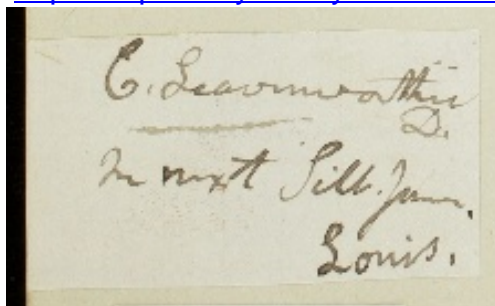 C. Leavenworthii
D.
In next Sill. Jour.
Louis.